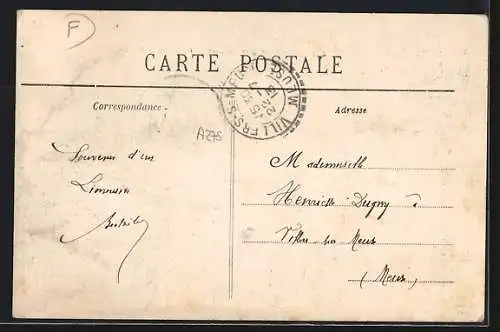 F
CARTE POSTALE
VILLERS-S-MEUSE MEUSE
Correspondance
Adresse
A275
Souvenir d'un
Limousin
Mademoiselle
Henriette Dugny
Villers sur Meuse
(Meuse)